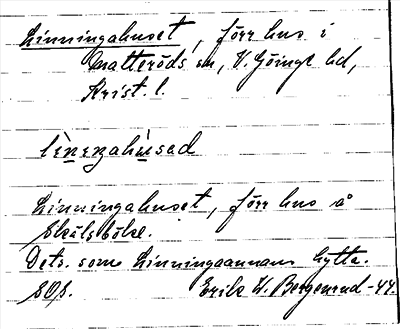 Linningahuset, förr hus i
Matteröds sn, V. Göinge hd,
Krist. l.
lìnengahùsed
Linningahuset, förr hus å
Skälsböke.
Dets. som Linningaannans hytta.
SOS. Erik W. Bergenrud -44.